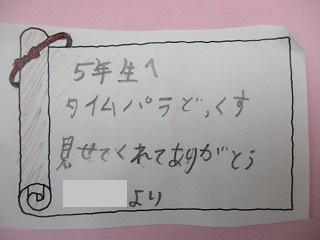 5年生へ
タイムパラどっくす
見せてくれてありがとう
より